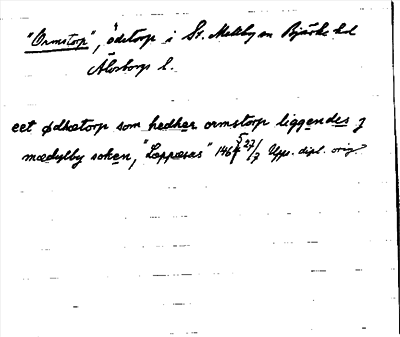 "Ormstorp", ödetorp i St. Mellby sn Bjärke hd
Älvsborgs l.
eet ødhætorp som hedher ormstorp liggendes j
mædhylby soken, "Loppæsas" 146 5/4 27/7 Upps. dipl. orig.